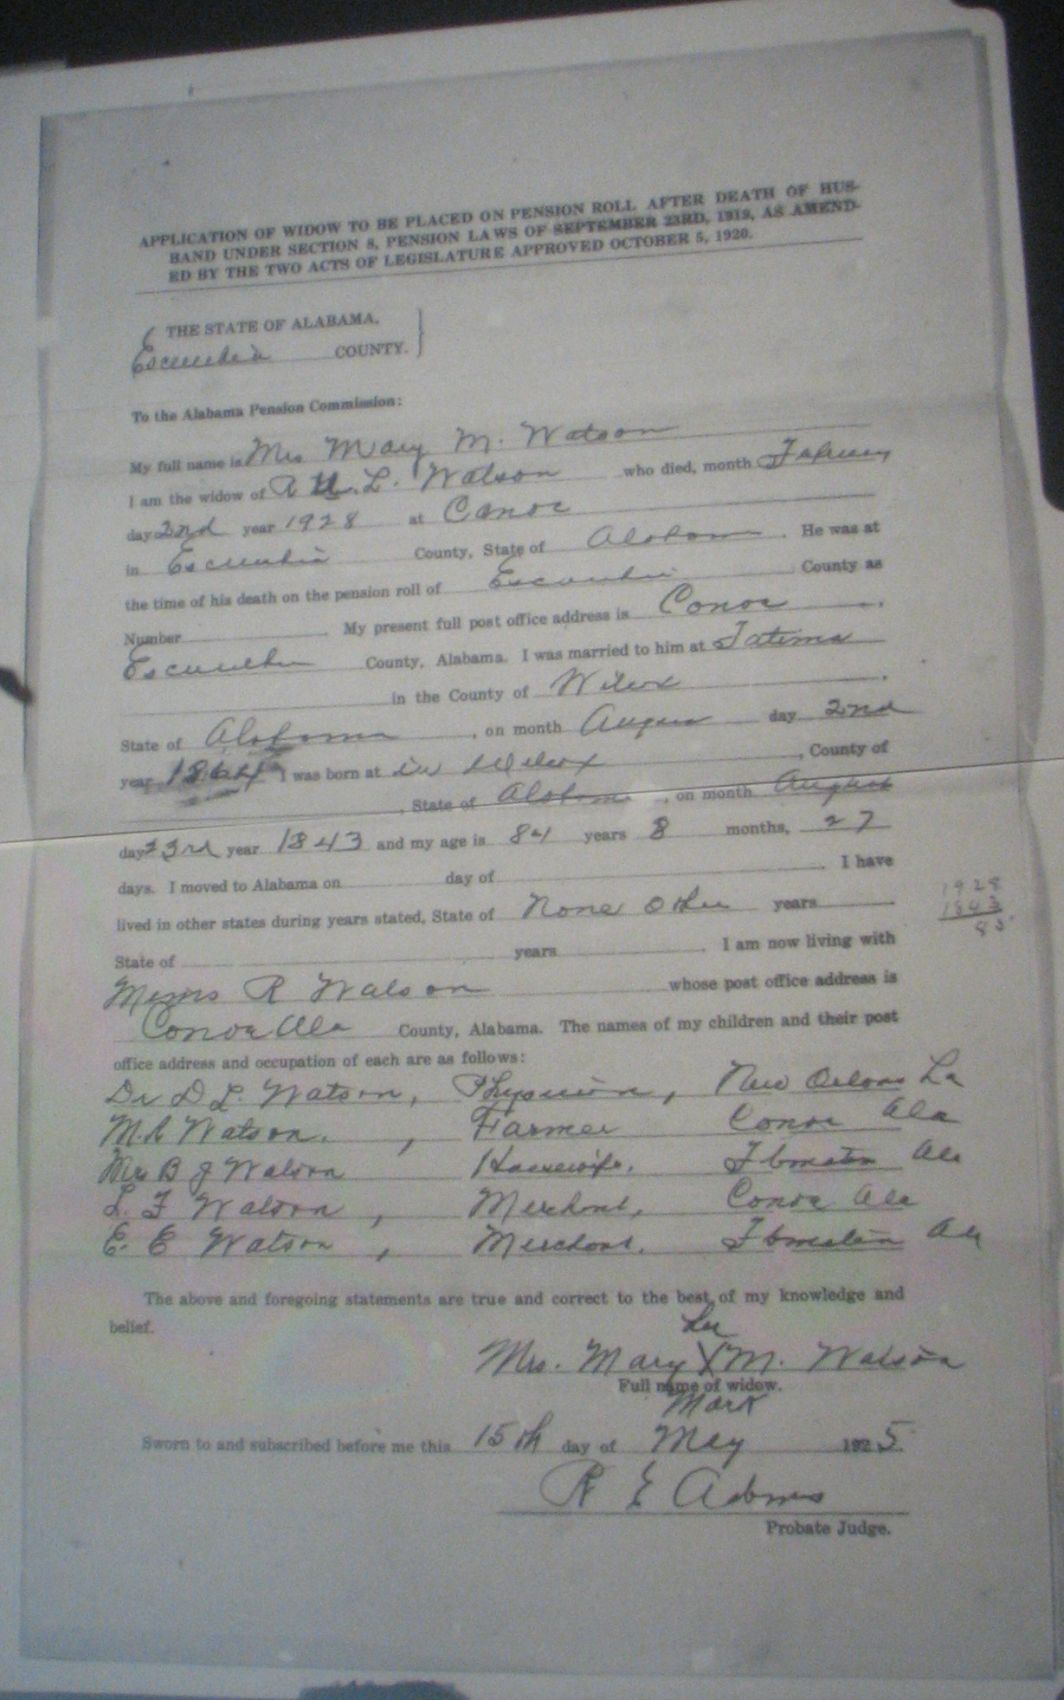 APPLICATION OF WIDOW TO BE PLACED ON PENSION ROLL AFTER DEATH OF HUS-
BAND UNDER SECTION 8, PENSION LAWS OF SEPTEMBER 23RD, 1919, AS AMEND-
ED BY THE TWO ACTS OF LEGISLATURE APPROVED OCTOBER 5, 1920.
THE STATE OF ALABAMA,
Escambia COUNTY.
To the Alabama Pension Commission:
My full name is Mrs Mary M. Watson
I am the widow of L. Watson who died, month
day 2nd year 1928 at Canoe
in Escambia County, State of Alabama. He was at
the time of his death on the pension roll of Escambia County as
Number . My present full post office address is Canoe .
Escambia County, Alabama. I was married to him at Fatima
in the County of Wilcox .
State of Alabama , on month August day 2nd
year 1864 I was born at in Wilcox , County of
, State of Alabama , on month August
day 23rd year 1843 and my age is 84 years 8 months, 27
days. I moved to Alabama on day of . I have
lived in other states during years stated, State of None Other years
1928
1843
85
State of years . I am now living with
Mims R Watson whose post office address is
Canoe Ala County, Alabama. The names of my children and their post
office address and occupation of each are as follows:
Dr D L. Watson, Physician, New Orleans La
M. R Watson, Farmer Canoe Ala
Mrs B J Watson Housewife, Flomaton Ala
L. F Watson, Merchant, Canoe Ala
E. E Watson, Merchant, Flomaton Ala
The above and foregoing statements are true and correct to the best of my knowledge and
belief.
her
Mrs. Mary X M. Watson
Full name of widow.
Mark
Sworn to and subscribed before me this 15th day of May 1925
R E Adams
Probate Judge.